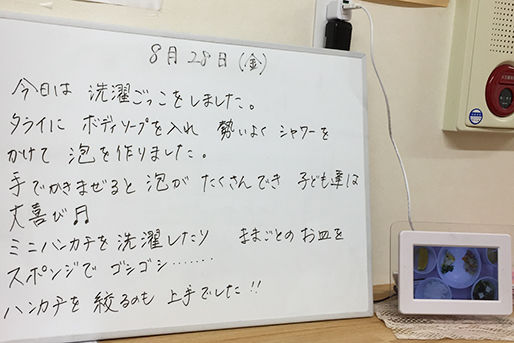 8月28日(金)
今日は 洗濯ごっこをしました。
タライに ボディソープを入れ 勢いよく シャワーを
かけて 泡を作りました。
手でかきまぜると 泡が たくさんでき 子ども達は
大喜び♬
ミニハンカチを 洗濯したり ままごとの お皿を
スポンジで ゴシゴシ.......
ハンカチを 絞るのも 上手でした!!